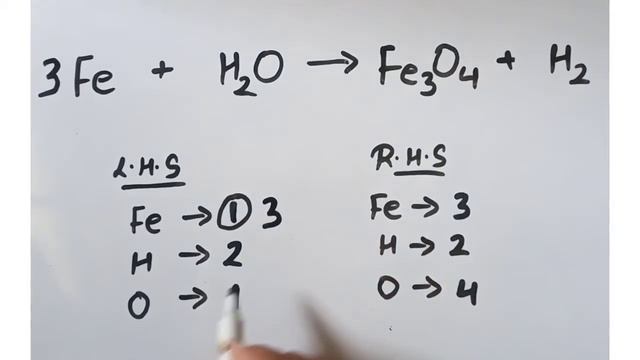 3Fe + H₂O → Fe₃O₄ + H₂
L.H.S
Fe → ① 3
H → 2
O → 1
R.H.S
Fe → 3
H → 2
O → 4